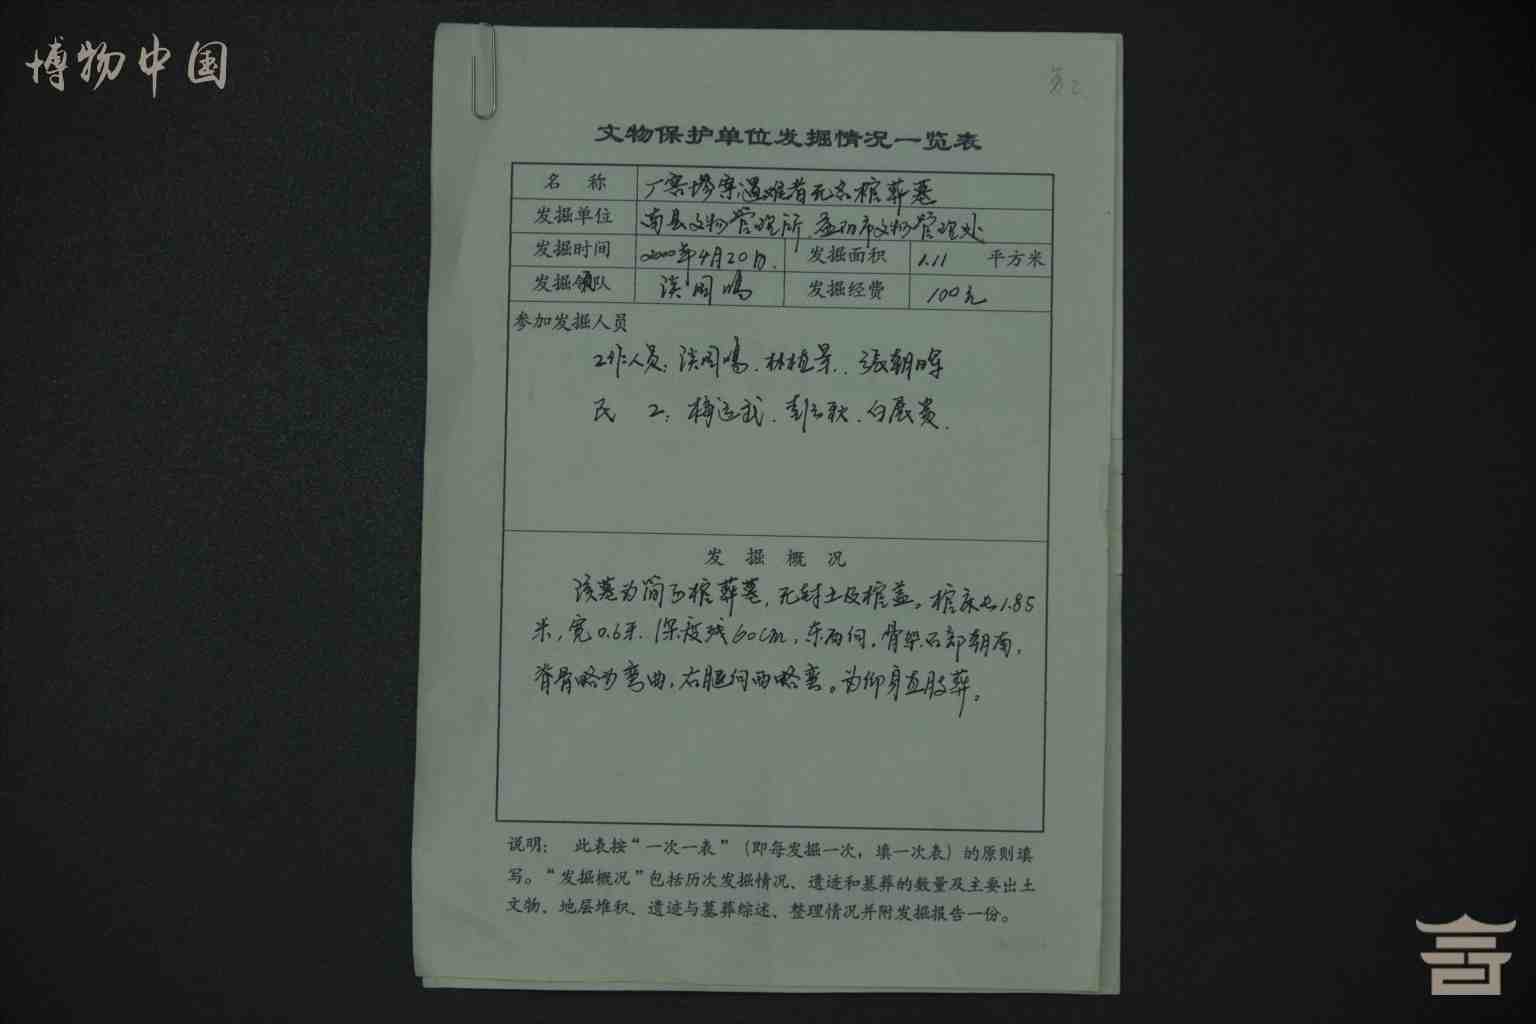 博物中国
文物保护单位发掘情况一览表
名 称 厂窖惨案遇难者瓦木棺葬墓
发掘单位 南县文物管理所、益阳市文物管理处
发掘时间 2000年4月20日. 发掘面积 1.11 平方米
发掘领队 谈国鸣 发掘经费 100元
参加发掘人员
工作人员: 谈国鸣、林植景、张朝晖
民 工: 梅运武、彭云秋、白晨贵.
发 掘 概 况
该墓为简易棺葬墓,无封土及棺盖。棺床长1.85
米,宽0.6米.深度残60cm,东西向,骨架右部朝南,
脊骨略为弯曲,右腿向西略弯。为仰身直肢葬。
说明: 此表按“一次一表”(即每发掘一次,填一次表)的原则填
写。“发掘概况”包括历次发掘情况、遗迹和墓葬的数量及主要出土
文物、地层堆积、遗迹与墓葬综述、整理情况并附发掘报告一份。